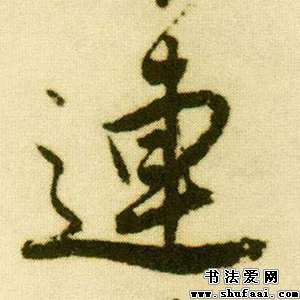 連
书法爱网
www.shufaai.com